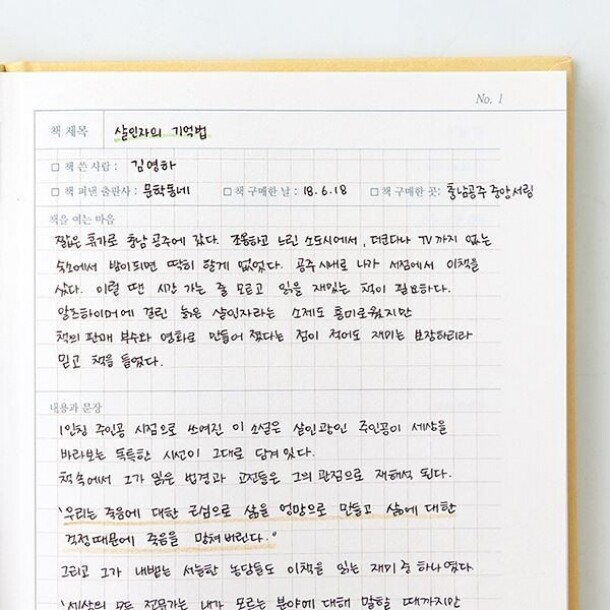 No. 1
책 제목 살인자의 기억법
□ 책 쓴 사람 : 김영하
□ 책 펴낸 출판사 : 문학동네 □ 책 구매한 날 : 18. 6. 18 □ 책 구매한 곳: 충남공주 중앙서림
책을 여는 마음
짧은 휴가로 충남 공주에 갔다. 조용하고 느린 소도시에서, 더군다나 TV까지 없는
숙소에서 밤이되면 딱히 할게 없었다. 공주 시내로 나가 서점에서 이책을
샀다. 이럴 땐 시간 가는 줄 모르고 읽을 재밌는 책이 필요하다.
알츠하이머에 걸린 늙은 살인자라는 소재도 흥미로웠지만
책의 판매 부수와 영화로 만들어 졌다는 점이 적어도 재미는 보장하리라
믿고 책을 들었다.
내용과 문장
1인칭 주인공 시점으로 쓰여진 이 소설은 살인광인 주인공이 세상을
바라보는 독특한 시선이 그대로 담겨있다.
책 속에서 그가 읽은 반경과 고전들은 그의 관점으로 재해석 된다.
"우리는 죽음에 대한 근심으로 삶을 엉망으로 만들고 삶에 대한
걱정때문에 죽음을 망쳐버린다."
그리고 그가 내뱉는 서늘한 농담들도 이책을 읽는 재미 중 하나였다.
"세상의 모든 전문가는 내가 모르는 분야에 대해 말할 때까지만